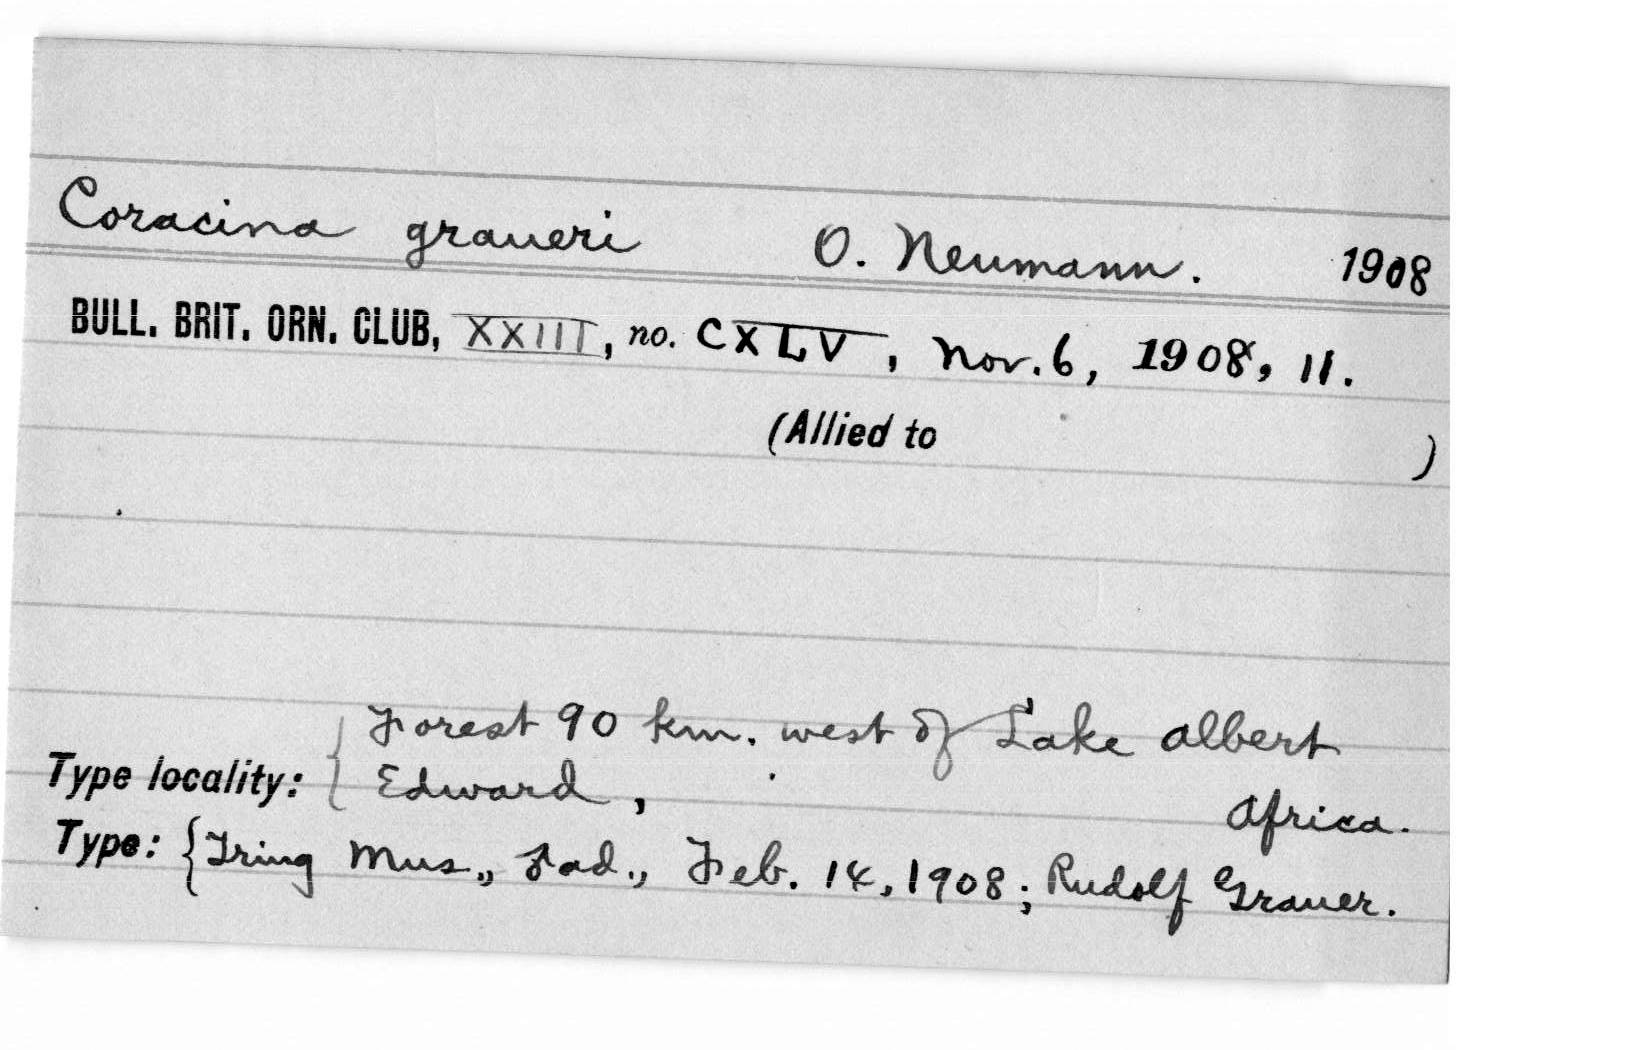 Coracina graueri O. Neumann. 1908
BULL. BRIT. ORN. CLUB, XXIII, no. CXLV, Nov. 6, 1908, 11.
(Allied to )
Forest 90 km. west of Lake Albert
Type locality: { Edward, Africa.
Type: { Tring Mus., ♂ ad., Feb. 14, 1908; Rudolf Grauer.